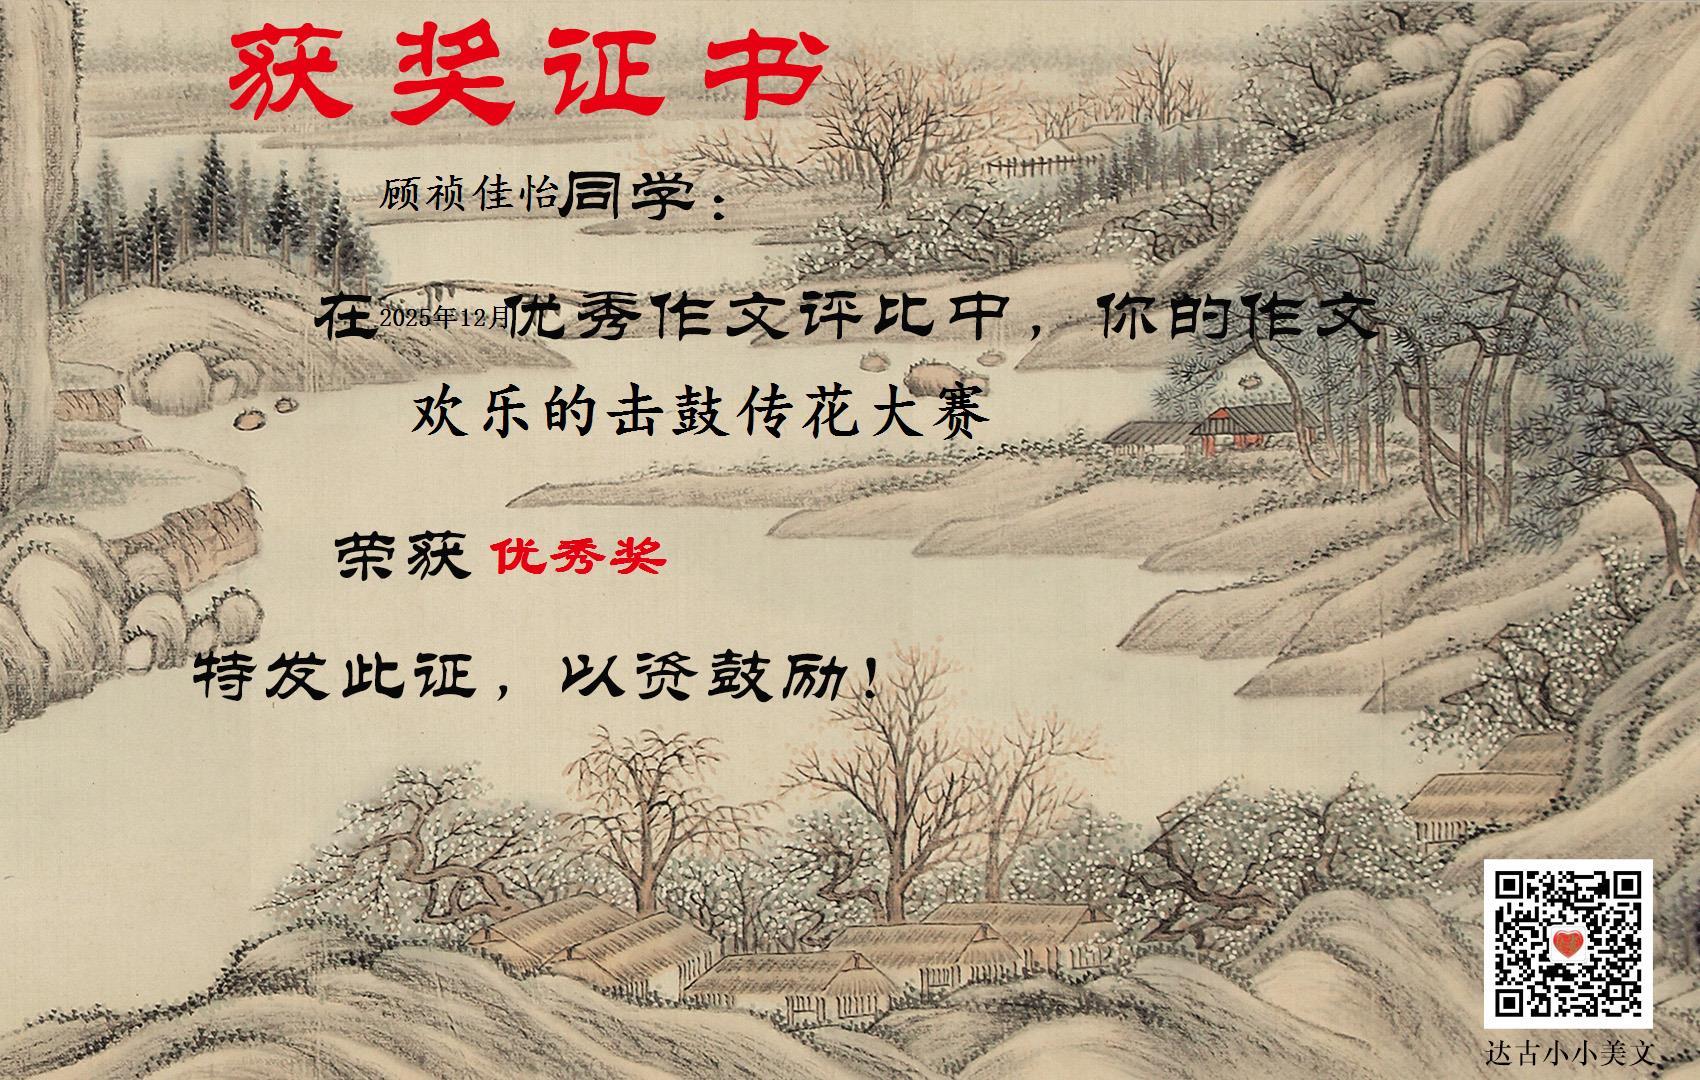 获奖证书
顾祯佳怡同学：
在2025年12月优秀作文评比中，你的作文
欢乐的击鼓传花大赛
荣获 优秀奖
特发此证，以资鼓励！
达古小小美文